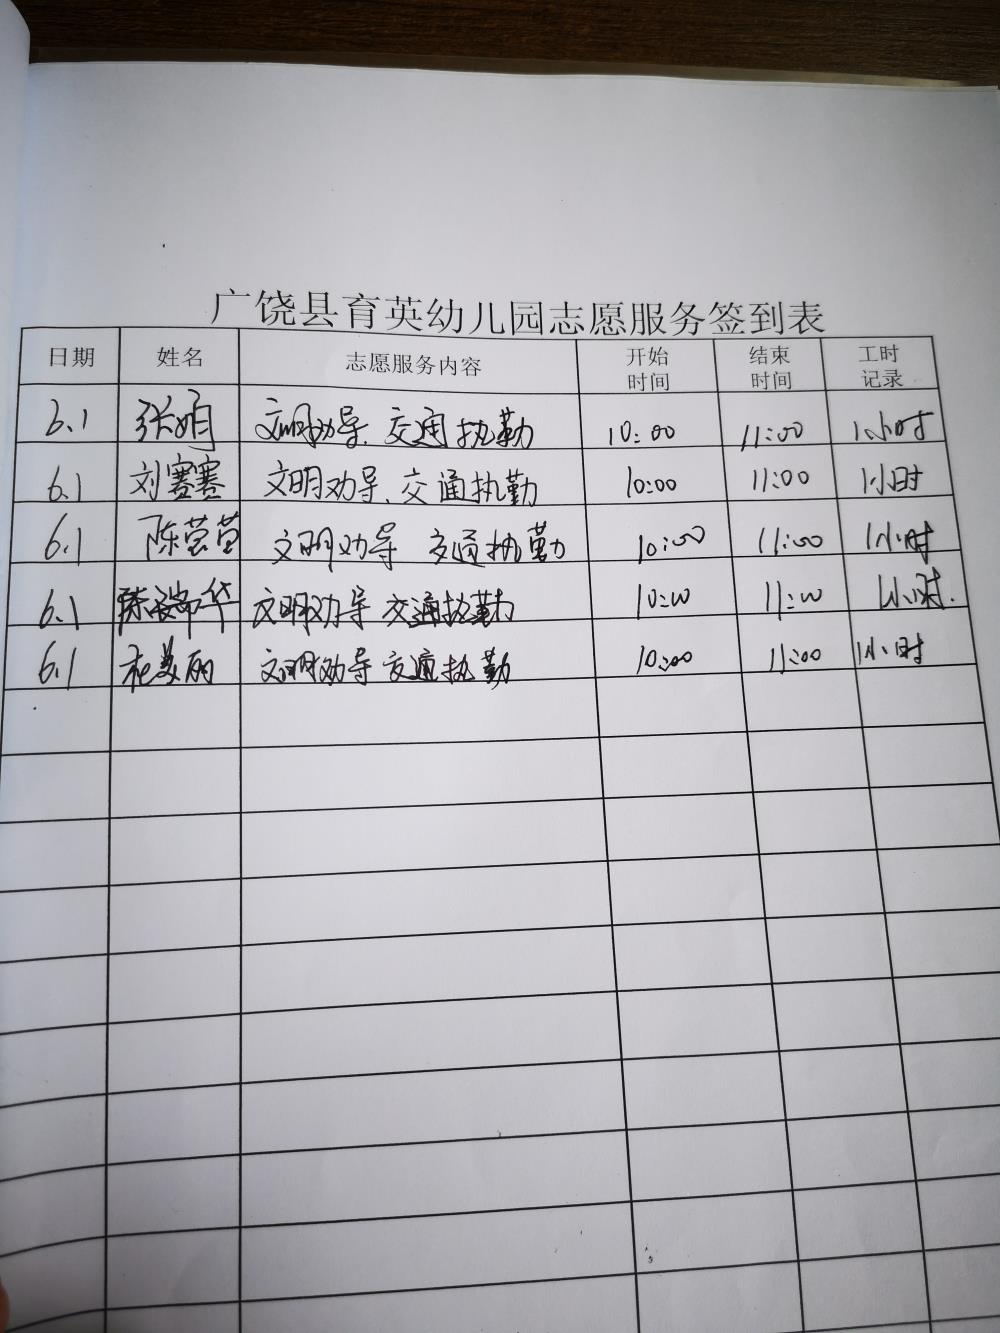 广饶县育英幼儿园志愿服务签到表
日期 姓名 志愿服务内容 开始时间 结束时间 工时记录
6.1 张娟 文明劝导、交通执勤 10:00 11:00 1小时
6.1 刘赛赛 文明劝导、交通执勤 10:00 11:00 1小时
6.1 陈莹莹 文明劝导 交通执勤 10:00 11:00 1小时
6.1 陈瑞华 文明劝导 交通执勤 10:00 11:00 1小时.
6.1 美丽 文明劝导 交通执勤 10:00 11:00 1小时